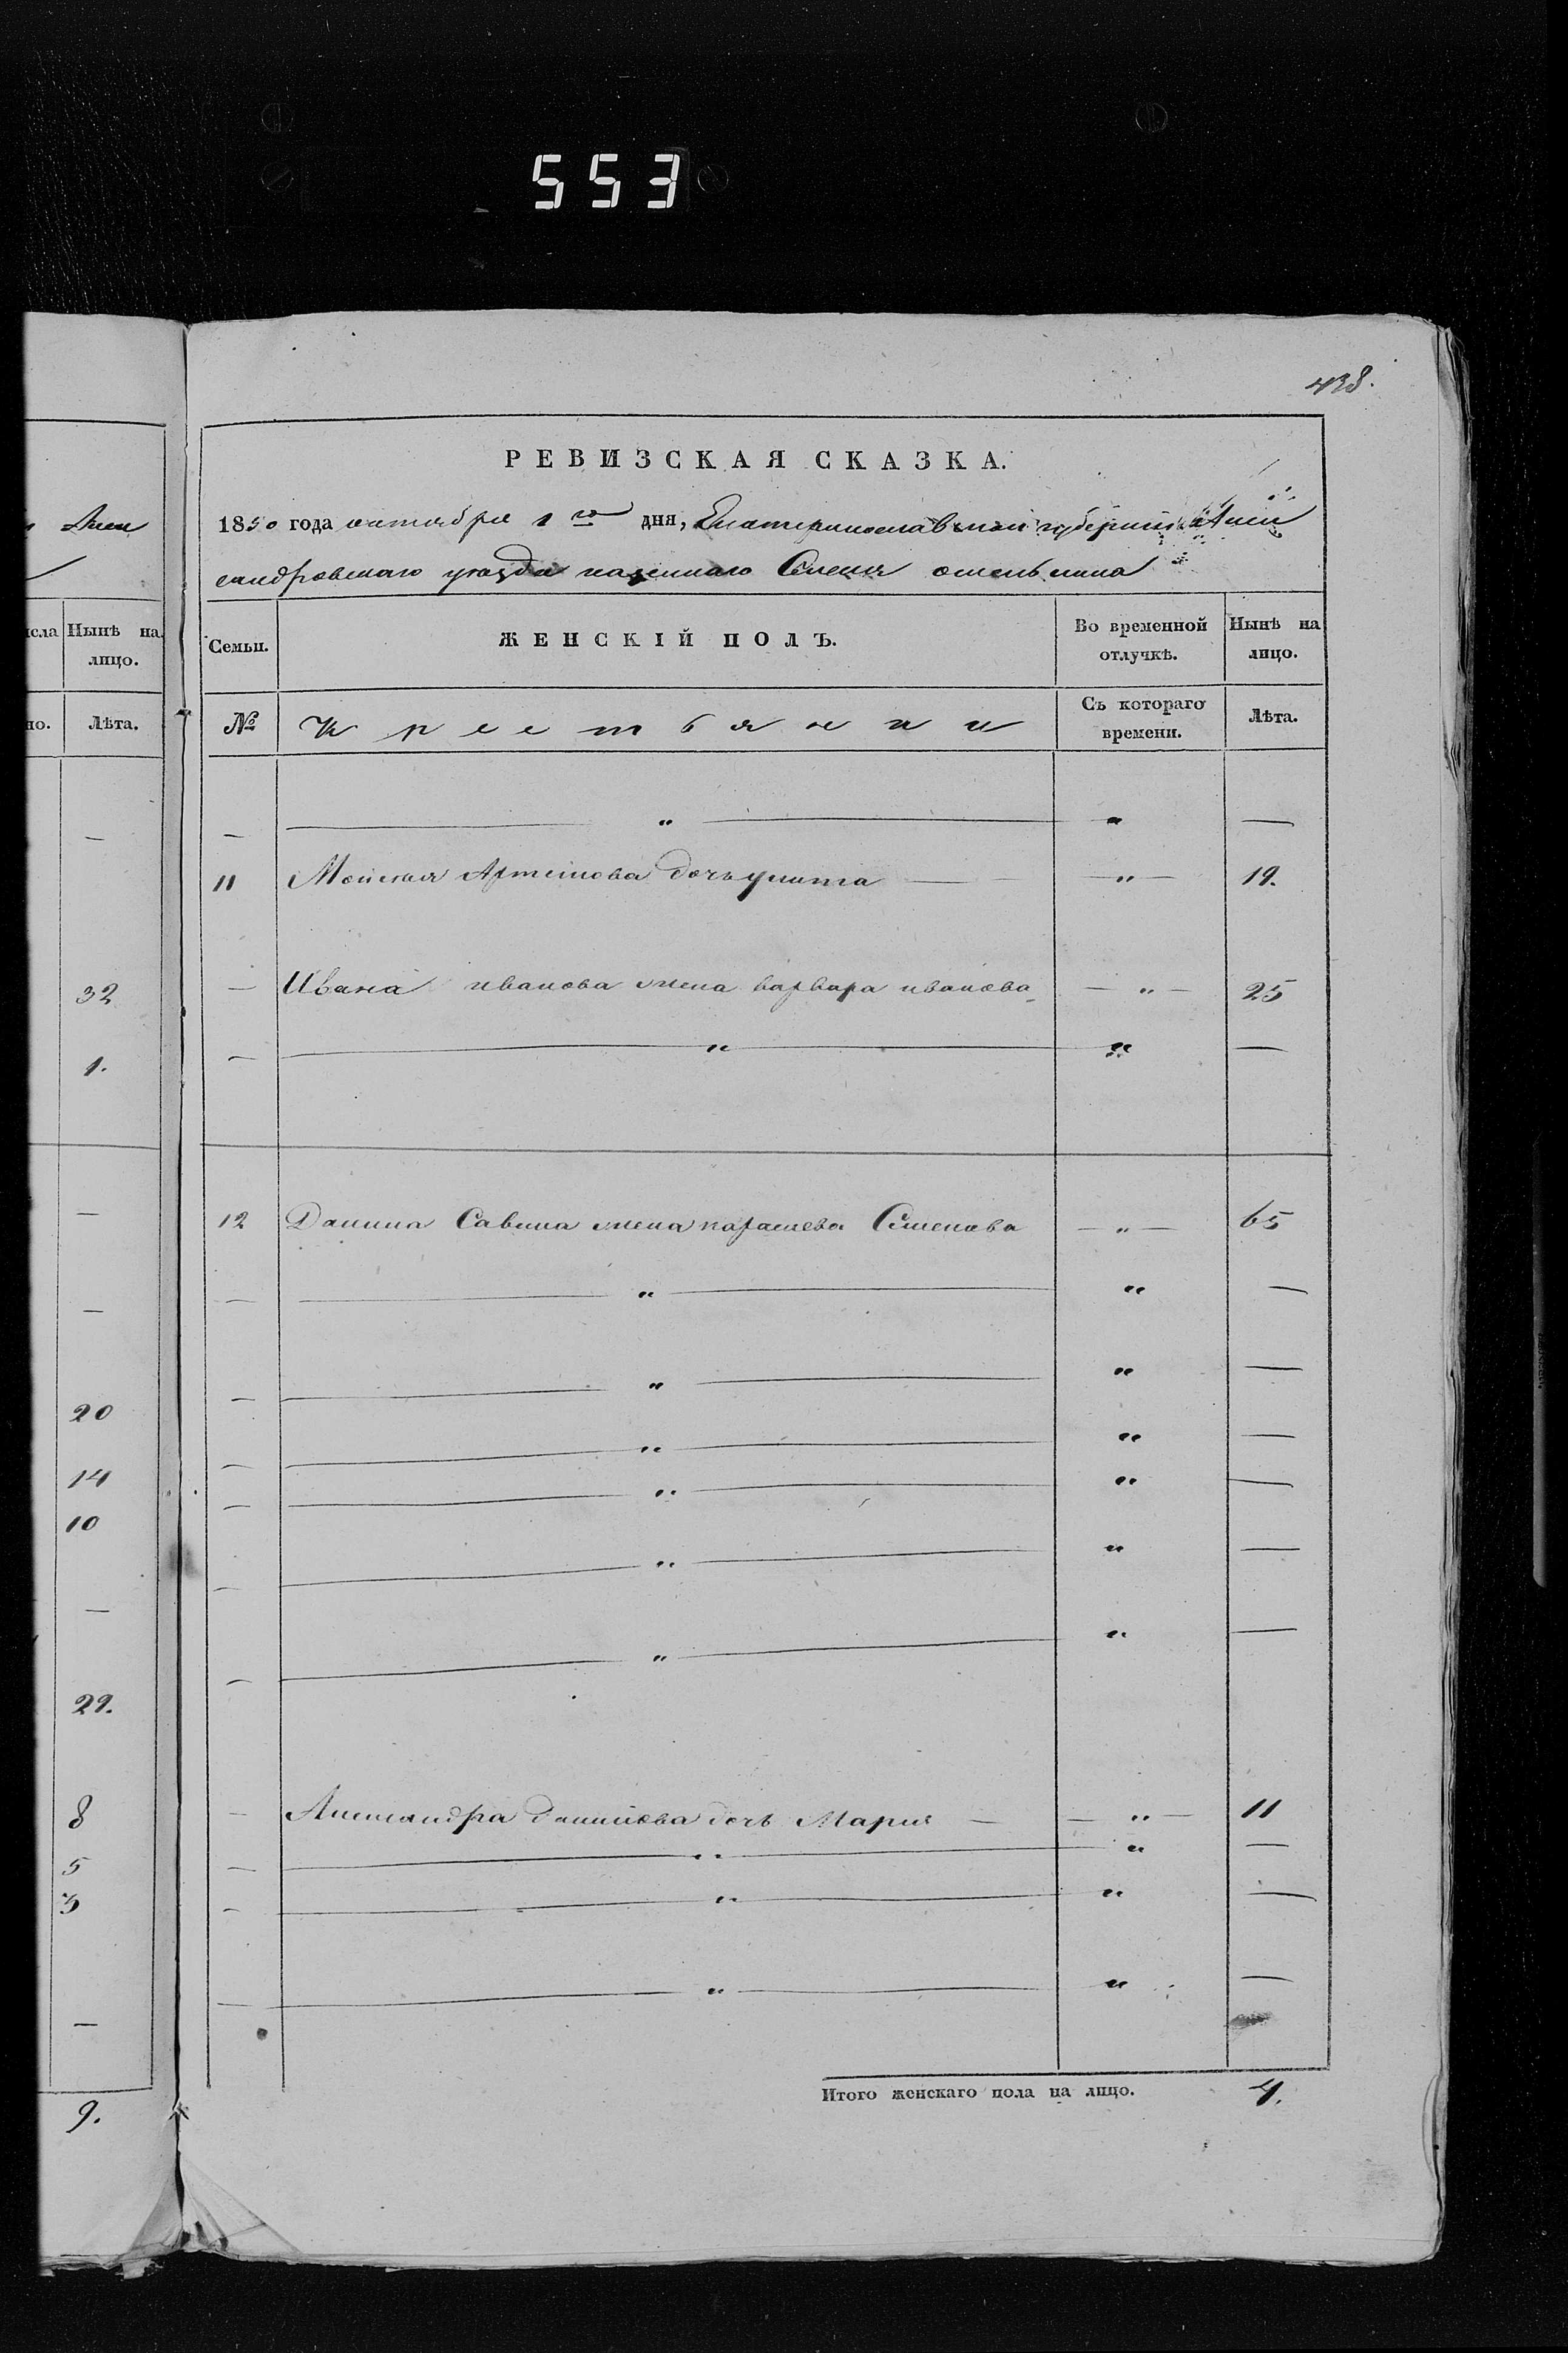 553
438.
РЕВИЗСКАЯ СКАЗКА.
1850 года октября 1го дня, Екатеринославской губернии Алек
сандровскаго уезда казеннаго Селенія
Нынѣ на лицо.
Лѣта.
Семьи.
ЖЕНСКІЙ ПОЛЪ.
Во временной отлучкѣ.
Нынѣ на лицо.
№
Крестьянки
Съ котораго времени.
Лѣта.
—
— " — " —
11 Мойсея Артемова дочь улита — " — 19.
32
— Ивана иванова жена варвара иванова — " — 25
1.
— — " — " —
—
12 Данила Савина жена Семенова — " — 65
—
— — " — " —
— — " — " —
20
— — " — " —
14
— — " — " —
10
— — " — " —
—
— — " — " —
29.
8
— Александра данилова дочь Мария — — " — 11
5
— — " — " —
3
— — " — " —
— — " — " —
—
Итого женскаго пола на лицо. 4.
9.